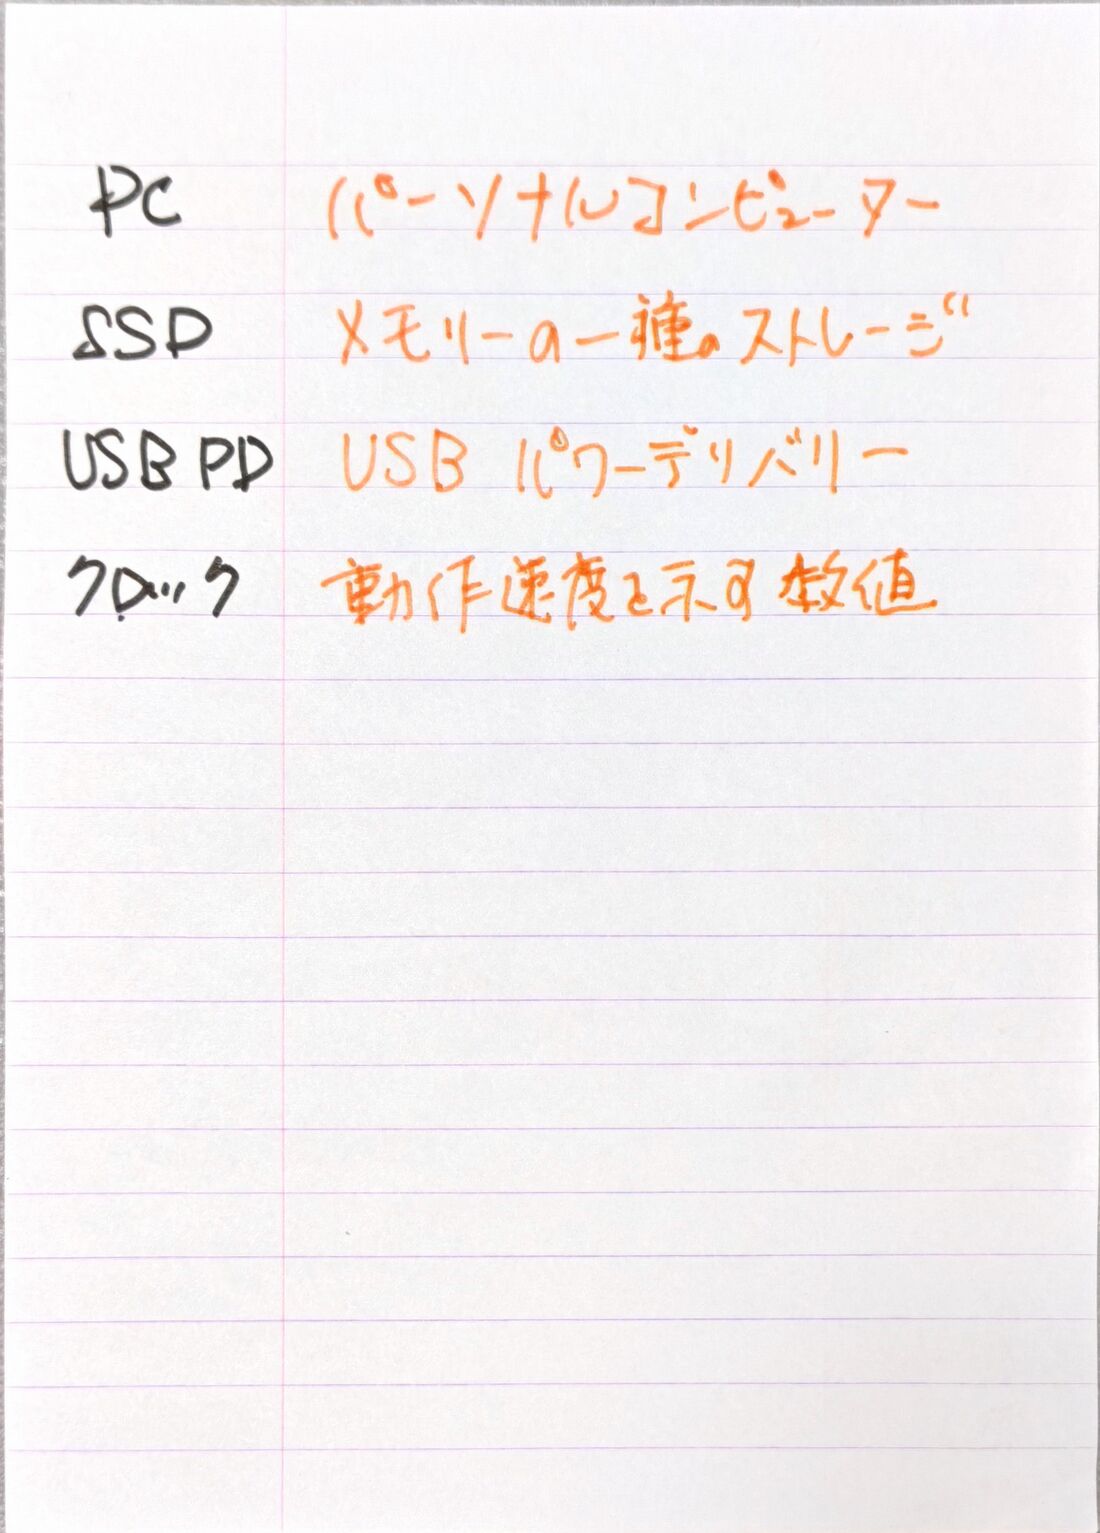 PC パーソナルコンピューター
SSD メモリーの一種のストレージ
USB PD USB パワーデリバリー
クロック 動作速度を示す数値